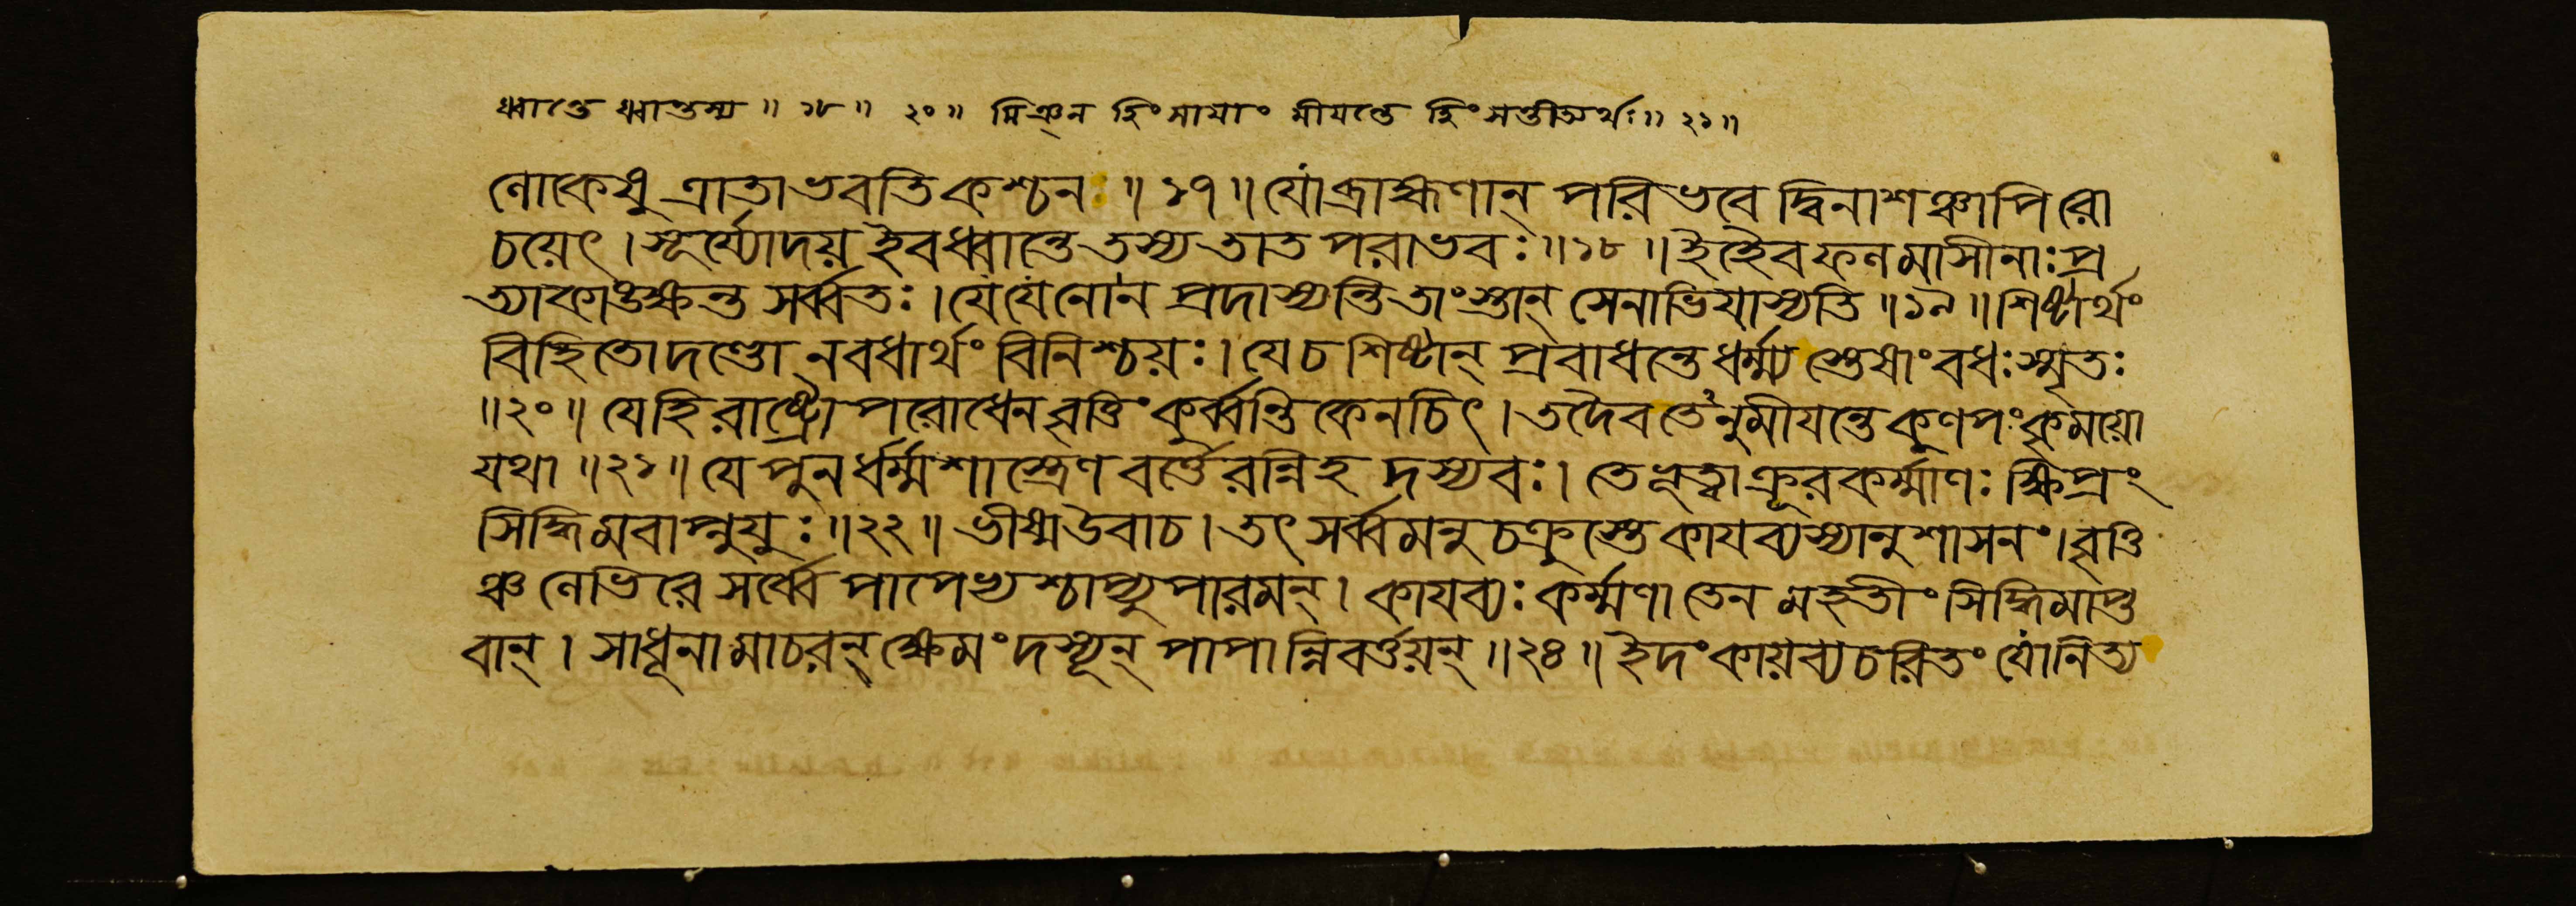 ধ্বান্তে ধ্বান্তস্য ॥ ১৮ ॥ ২০ ॥ মিঞ্ন হিংসাযাং মীযন্তে হিংসন্তীত্যর্থঃ ॥ ২১ ॥
লোকেষু ত্রাতা ভবতি কশ্চন ॥ ১৭ ॥ যো ব্রাহ্মণান্ পরিভবেদ্বিনাশঞ্চাপি রো
চয়েৎ । সূর্য্যোদয় ইব ধ্বান্তে তস্য তাত পরাভবঃ ॥ ১৮ ॥ ইহৈব ফলমাসীনাঃ প্র
ত্যাকাঙক্ষন্ত সর্ব্বতঃ । যে যে নো ন প্রদাস্যন্তি তাংস্তান্ সেনাভিযাস্যতি ॥ ১৯ ॥ শিষ্টার্থং
বিহিতো দণ্ডো ন বধার্থং বিনিশ্চয়ঃ । যে চ শিষ্টান্ প্রবাধন্তে ধর্ম্ম্য স্তেষাং বধঃ স্মৃতঃ
॥ ২০ ॥ যে হি রাষ্ট্রোপরোধেন বৃত্তিং কুর্ব্বন্তি কেনচিৎ । তদৈব তেঽনুমীযন্তে কুণপং কৃময়ো
যথা ॥ ২১ ॥ যে পুন র্ধর্ম্মশাস্ত্রেণ বর্ত্তেরন্নিহ দস্যবঃ । তে ভূত্বা ক্রূরকর্ম্মাণঃ ক্ষিপ্রং
সিদ্ধিমবাপ্নুযুঃ ॥ ২২ ॥ ভীষ্ম উবাচ । তৎ সর্ব্বমনুচক্রুস্তে কাযব্যস্যানুশাসনং । বৃত্তি
ঞ্চ লেভিরে সর্ব্বে পাপেভ্য শ্চাপ্যুপারমন্ । কাযব্যঃ কর্ম্মণা তেন মহতীং সিদ্ধিমাপ্ত
বান্ । সাধূনামাচরন্ ক্ষেমং দস্যূন্ পাপান্নিবর্ত্তয়ন্ ॥ ২৪ ॥ ইদং কায়ব্যচরিতং যো নিত্য